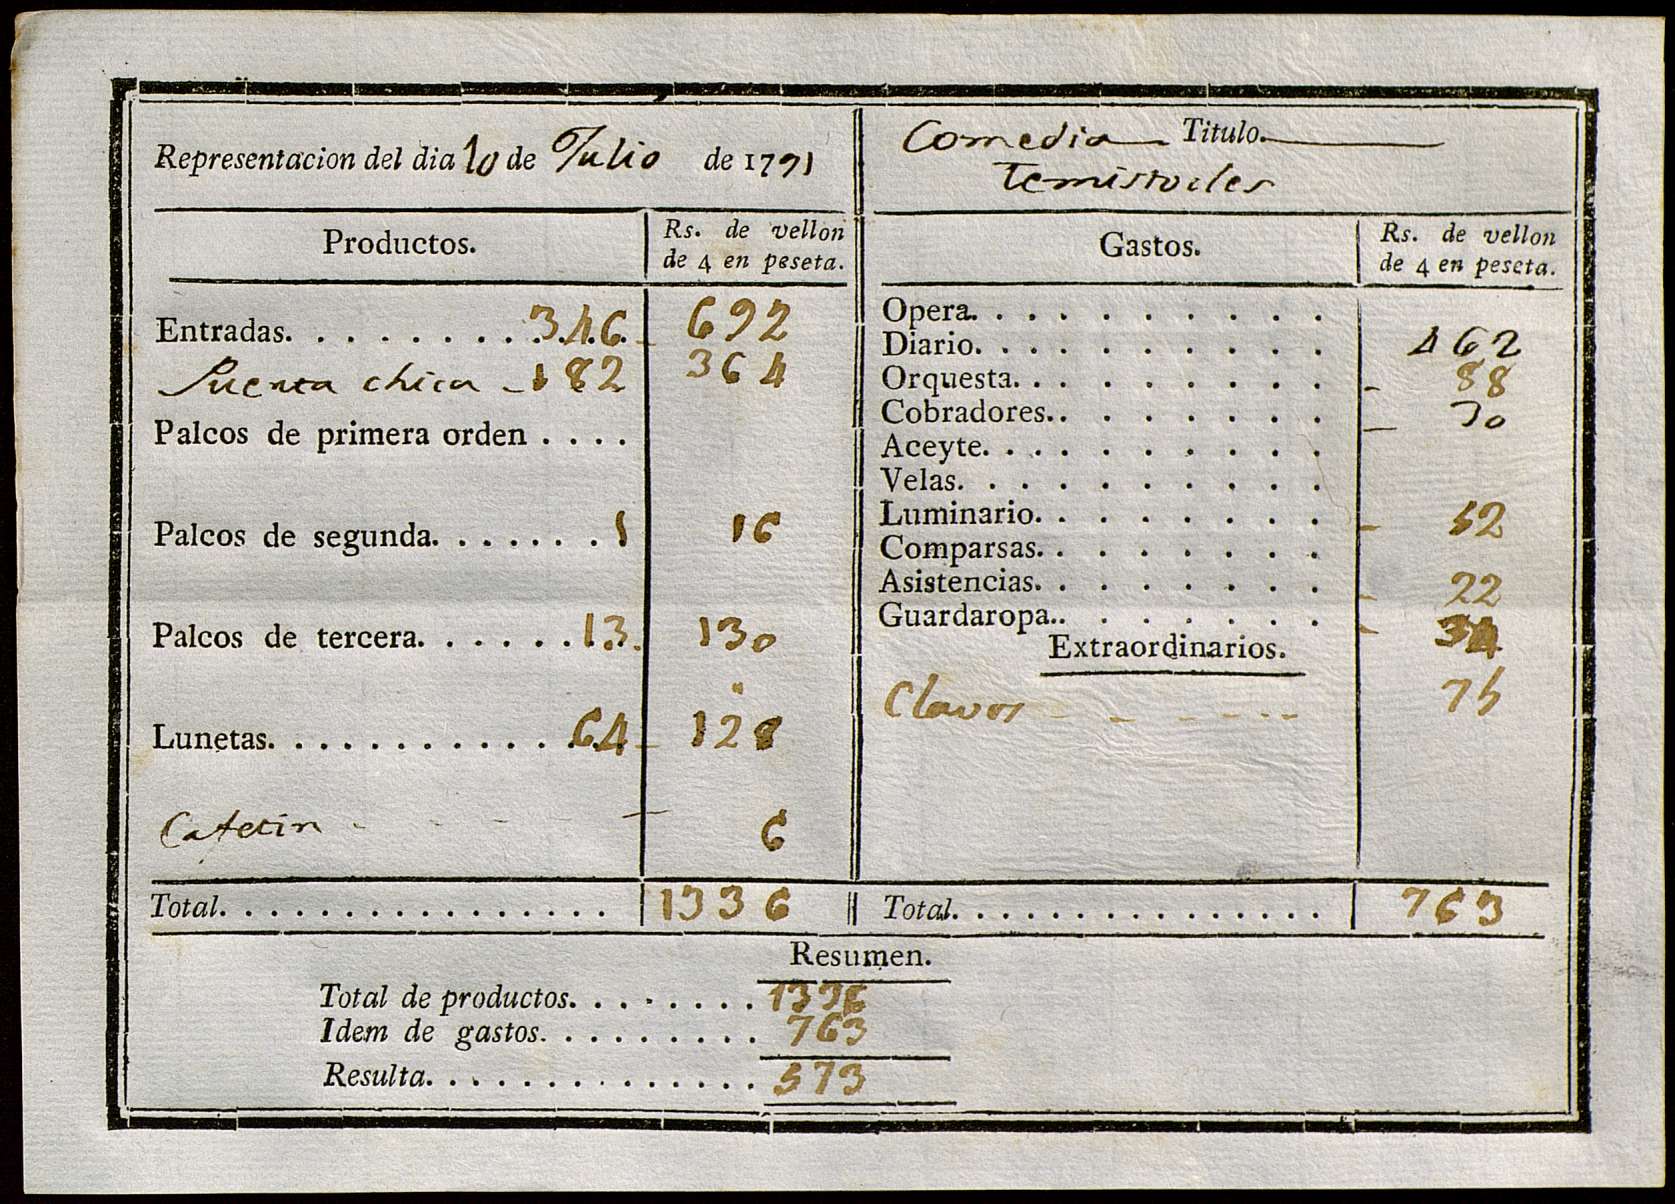 Representacion del dia 10 de Julio de 1791
Comedia Titulo.
Temistocles
Productos.
Rs. de vellon
de 4 en peseta.
Entradas. . . . . . . . . 346. 692
Puerta chica - 182 364
Palcos de primera orden . . . .
Palcos de segunda. . . . . . . 1 16
Palcos de tercera. . . . . . 13. 130
Lunetas. . . . . . . . . . . . 64 128
Cafetin - - - - 6
Total. . . . . . . . . . . . . . . . . 1336
Gastos.
Rs. de vellon
de 4 en peseta.
Opera. . . . . . . . . .
Diario. . . . . . . . . . 462
Orquesta. . . . . . . . . 88
Cobradores. . . . . . . . 30
Aceyte. . . . . . . . . .
Velas. . . . . . . . . .
Luminario. . . . . . . . 52
Comparsas. . . . . . . .
Asistencias. . . . . . . . 22
Guardaropa. . . . . . . . 34
Extraordinarios.
Clavos - - - - - 75
Total. . . . . . . . . . . . . . . 763
Resumen.
Total de productos. . . . . . . . 1336
Idem de gastos. . . . . . . . . 763
Resulta. . . . . . . . . . . . . . 573